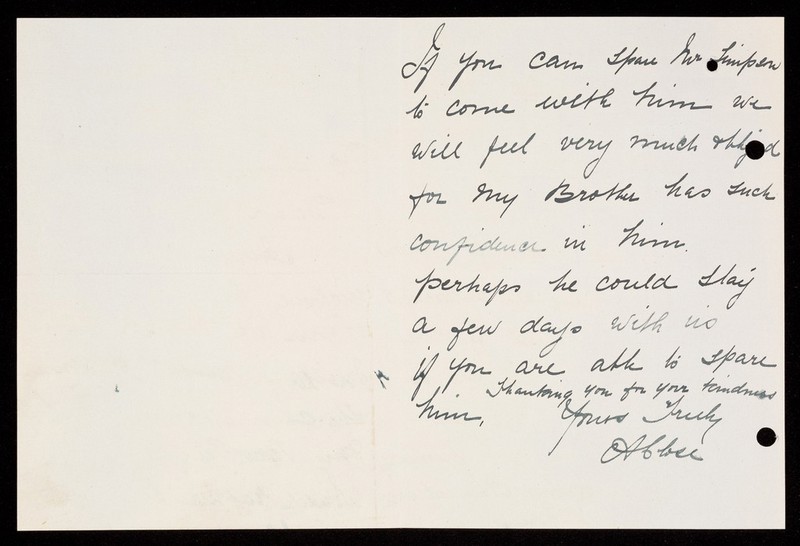 If you can spare Mr Simpson
to come with him we
will feel very much
for My Brother has such
confidence in him.
perhaps he could stay
a few days with us
if you are able to spare
him. Thanking you for your kindness
Yours Truly
A Close